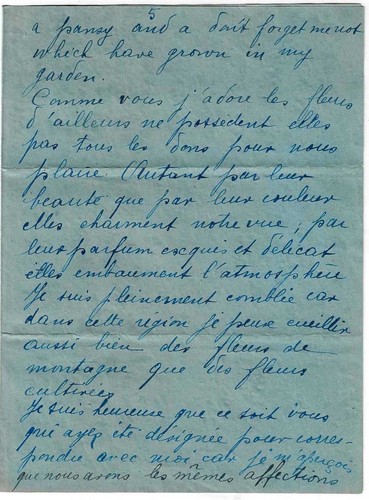 5
a pansy and a don't forget me not
which have grown in my
garden.
Comme vous j'adore les fleurs
d'ailleurs ne possèdent elles
pas tous les dons pour nous
plaire. Autant par leur
beauté que par leur couleur
elles charment notre vue, par
leur parfum exquis et délicat
elles embaument l'atmosphère
Je suis pleinement comblée car
dans cette région je peux cueillir
aussi bien des fleurs de
montagne que des fleurs
cultivées
Je suis heureuse que ce soit vous
qui ayez été désignée pour corres-
pondre avec moi car je m'aperçois
que nous avons les mêmes affections